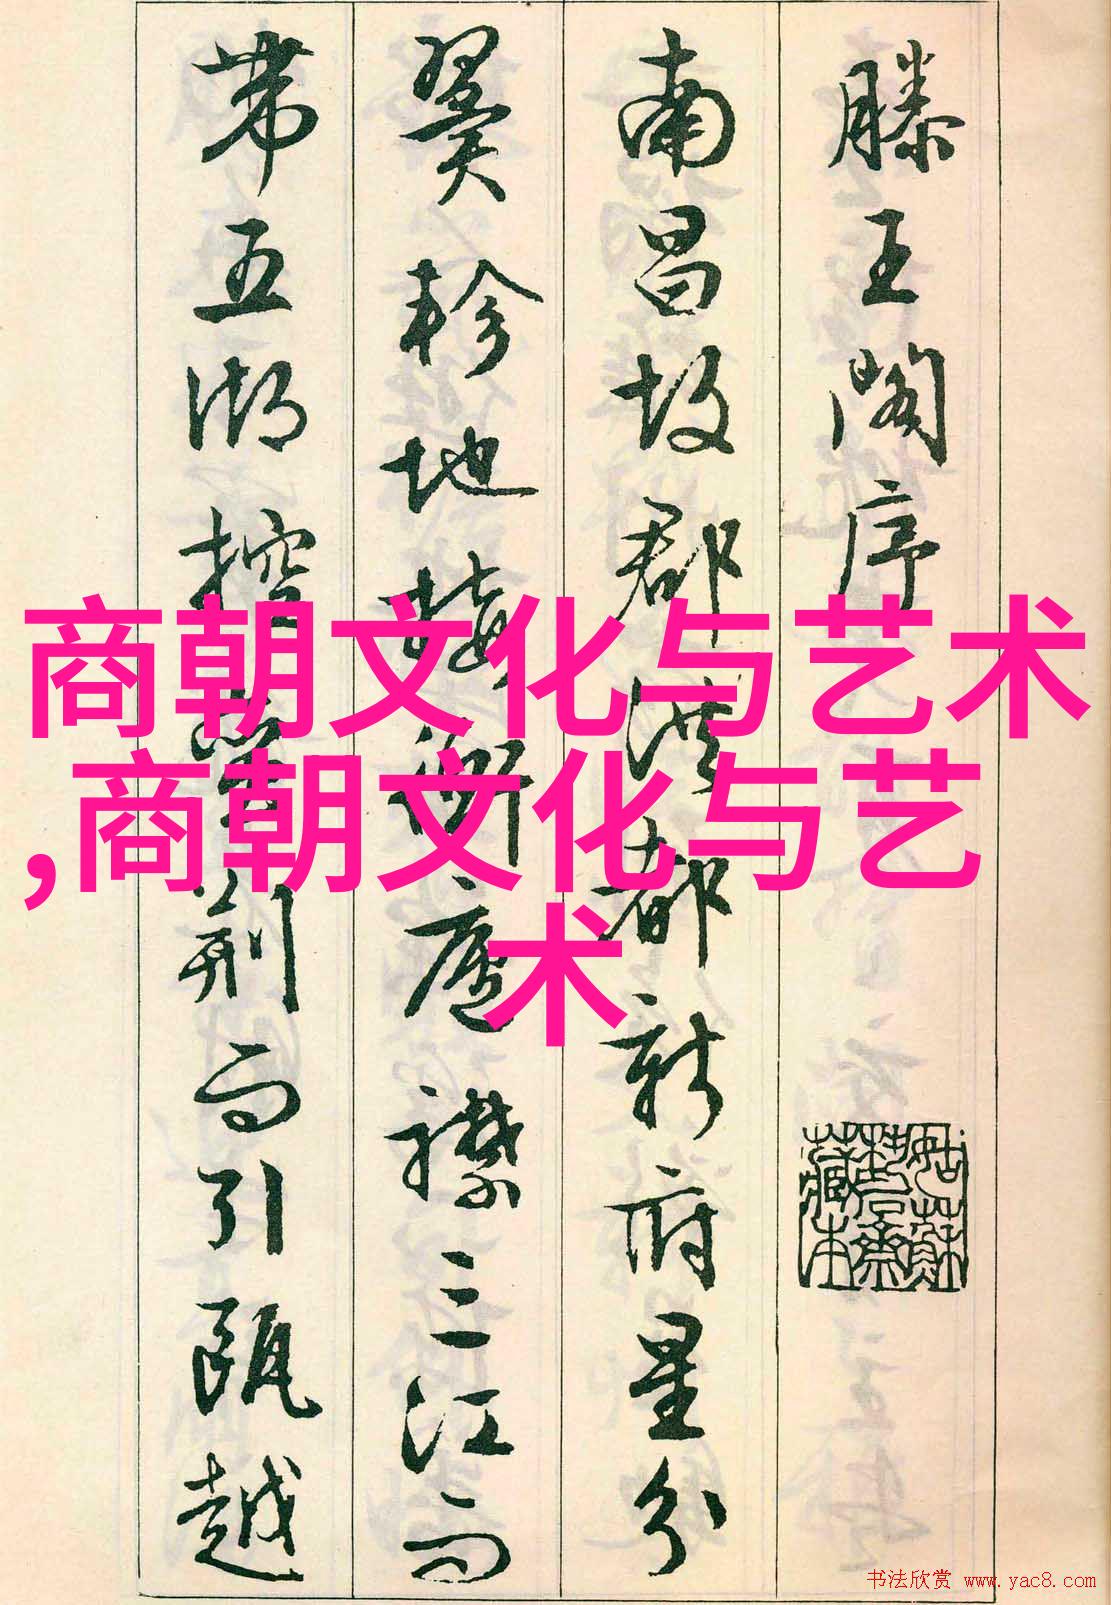 滕王阁序
南昌故郡洪都新府星分
翼轸地接衡庐襟三江而
带五湖控蛮荆而引瓯越
商朝文化与艺术
,商朝文化与艺
术
姑苏
藏本
书法欣赏 www.yac8.com